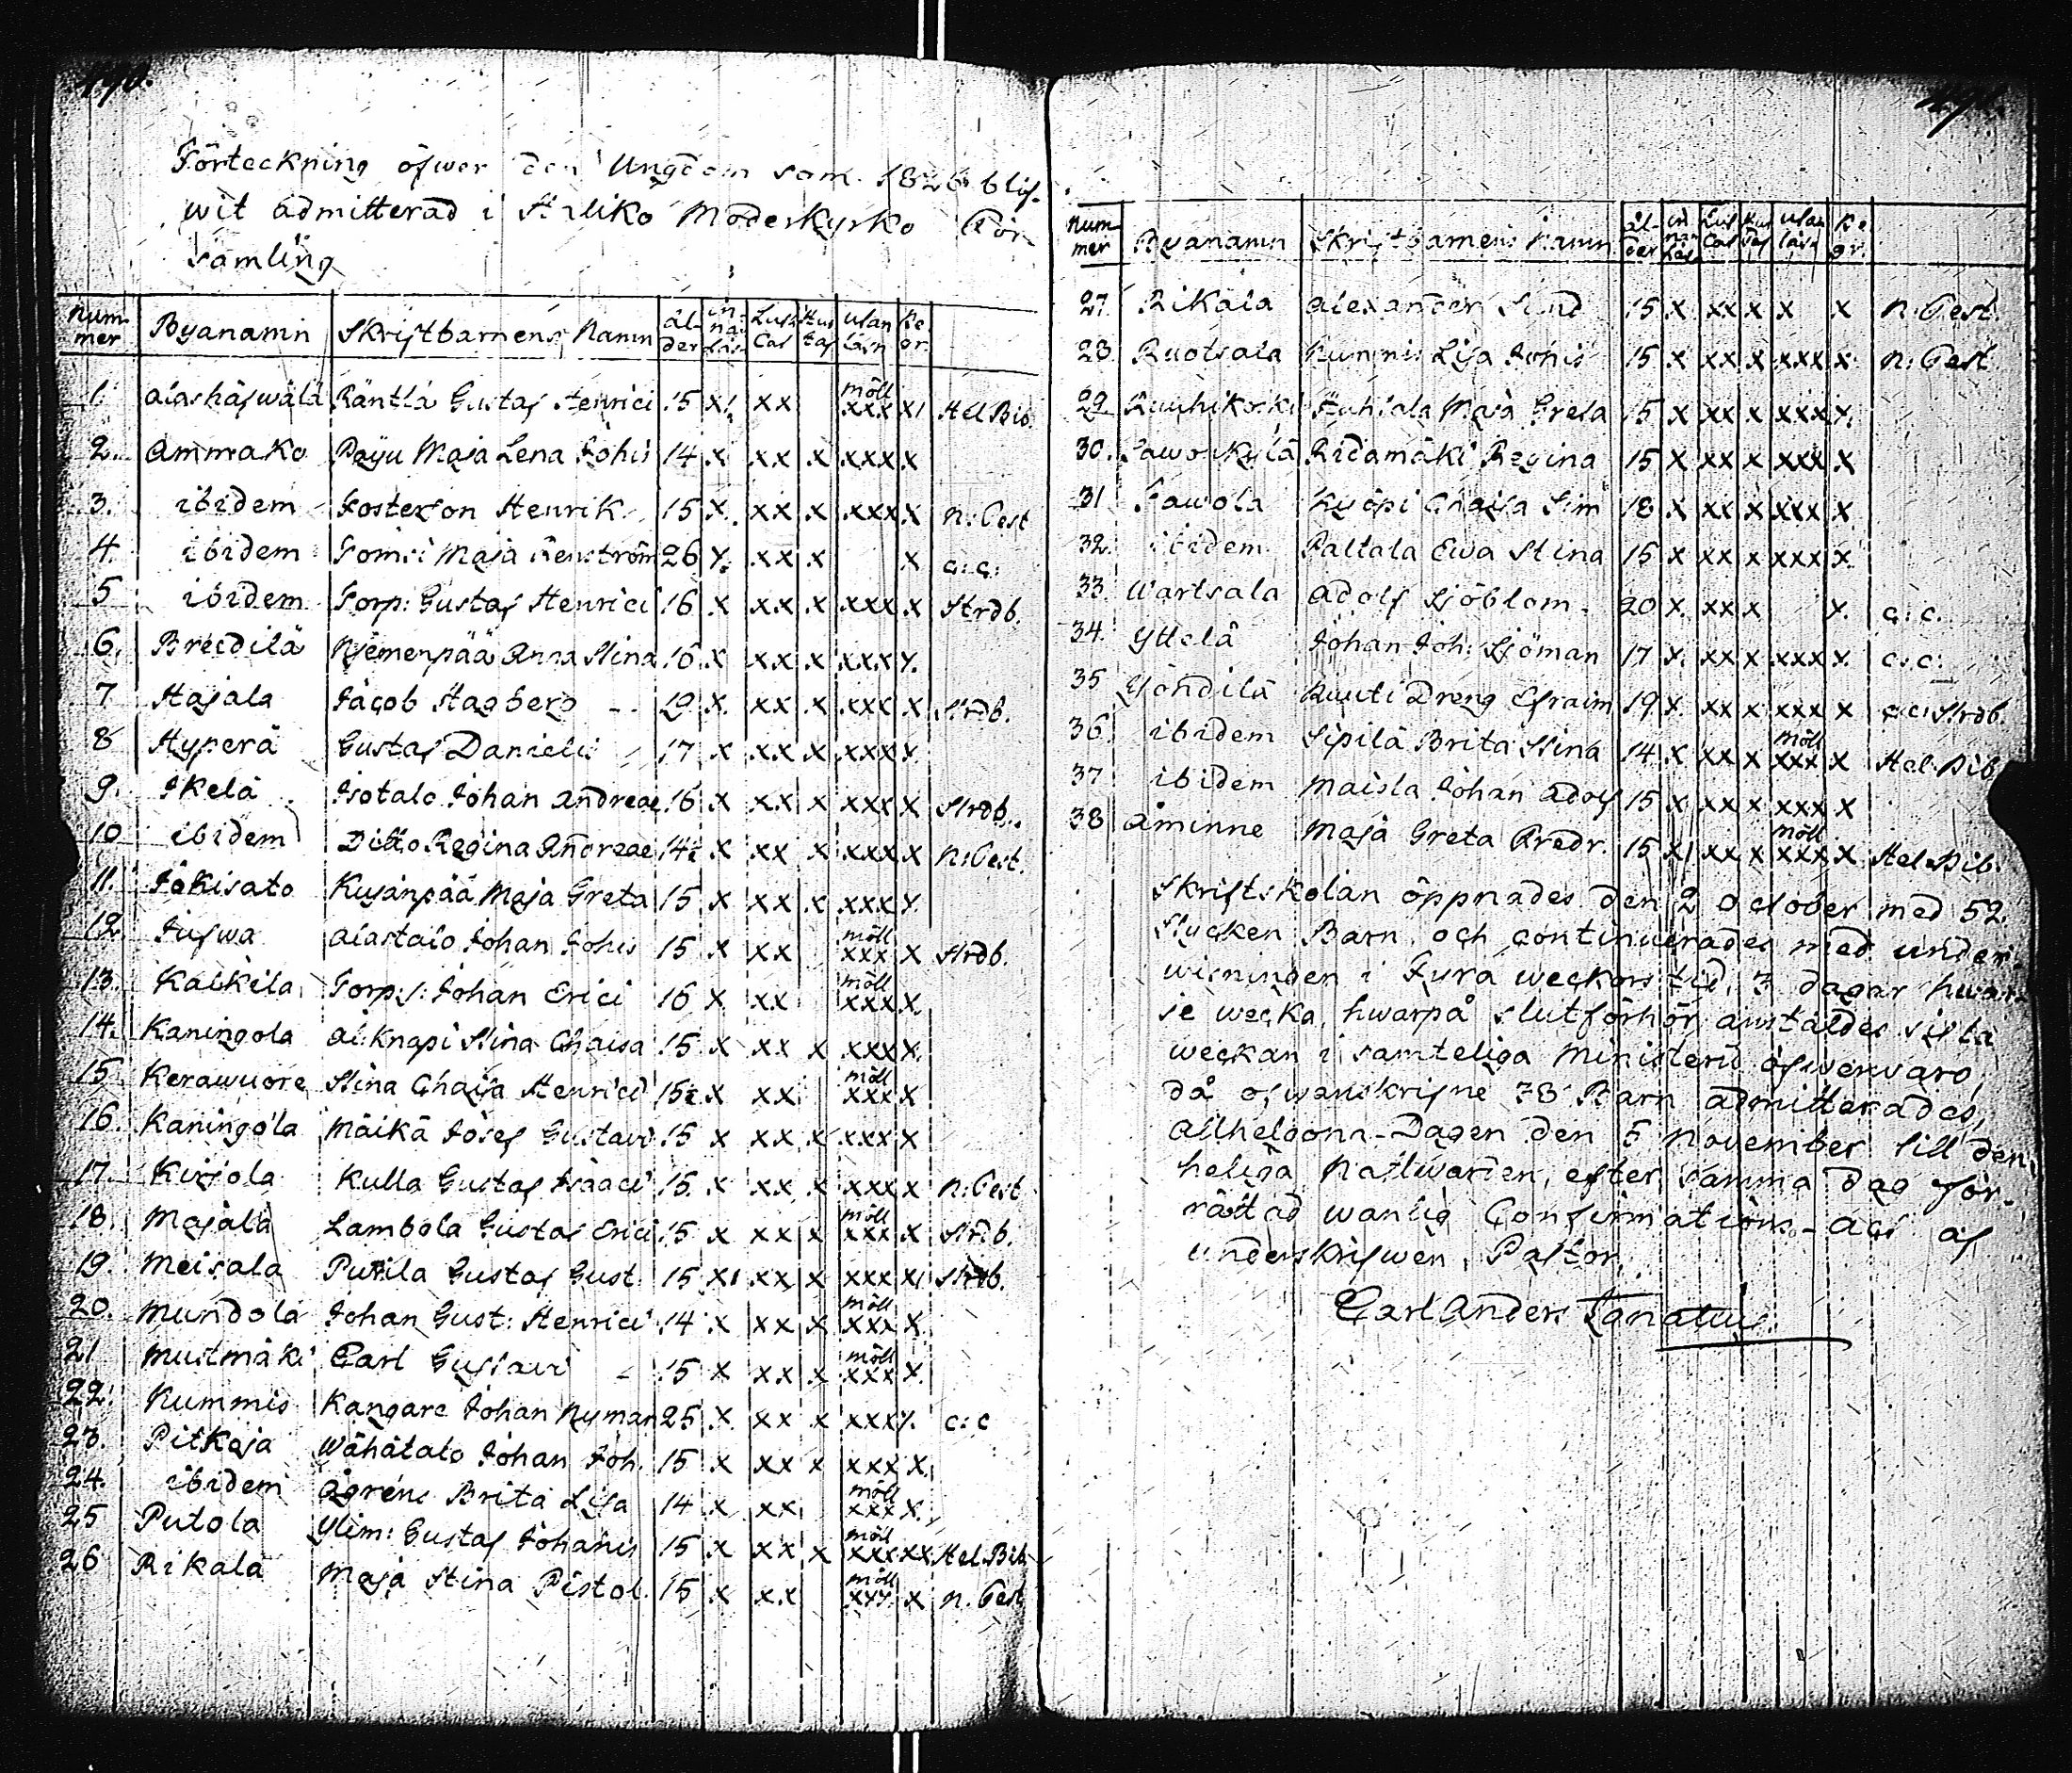 190.
Förteckning öfwer den Ungdom som 1826 blif-
wit admitterad i Haliko Moderkyrko För-
samling
Num-mer Byanamn Skriftbarnens Namn ål-der in-nan läsn Luth Cat Hus taf utan läsn Be gr.
1. Alashäfwälä Räntlä Gustaf Henrici 15 x1 xx möll xxx x1 Hel Bib.
2. Ammako Payu Maja Lena Johis 14 x xx x xxx x
3. ibidem Fosterson Henrik 15 x xx x xxx x N: Test
4. ibidem Tomsi Maja Renström 26 x xx x x c: c:
5 ibidem Torp: Gustaf Henrici 16 x xx x xxx x Hrdb.
6. Breidilä Niemenpää Anna Stina 16 x xx x xxx x
7 Hajala Jacob Hagberg 19 x xx x xxx x Hrdb.
8 Hyperä Gustaf Danielis 17 x xx x xxx x
9. Ikelä Isotalo Johan Andreae 16 x xx x xxx x Hrdb.
10 ibidem Ditto Regina Andreae 14½ x xx x xxx x N: Test.
11. Jokisato Kujanpää Maja Greta 15 x xx x xxx x
12. Jufwa Alastalo Johan Johis 15 x xx möll xxx x Hrdb.
13. Kaikila Torp: s: Johan Erici 16 x xx möll xxx x
14. Kaningola Al: Knapi Stina Chaisa 15 x xx x xxx x
15. Kerawuore Stina Chaisa Henrici 15½ x xx möll xxx x
16. Kaningola Mäikä Josef Gustavi 15 x xx x xxx x
17. Kirjola Kulla Gustaf Isaaci 15 x xx x xxx x N: Test
18. Majala Lambola Gustaf Erici 15 x xx x möll xxx x Hrdb.
19. Meisala Putila Gustaf Gust. 15 x1 xx x xxx x1 Hrdb.
20. Mundola Johan Gust: Henrici 14 x xx x möll xxx x
21 Mustmäki Carl Gustavi 15 x xx x möll xxx x
22. Nummis Kangare Johan Nyman 25 x xx x xxx x c: c
23. Pitkeja Wähätalo Johan Joh. 15 x xx x xxx x
24. ibidem Ågrens Brita Lisa 14 x xx möll xxx x
25 Putola Ylim: Gustaf Johanis 15 x xx x möll xxx xx Hel. Bib.
26 Rikala Maja Stina Pistol. 15 x xx möll xxx x N. Test
191.
Num-mer Byanamn Skriftbarnens Namn ål-der in nan läsn Lut Cat Hus taf utan läsn Be gr.
27. Rikala Alexander Lind 15 x xx x x x N: Test.
28. Ruotsala Nummis Lisa Johis 15 x xx x xxx x N: Test
29 Huhtala Maja Greta 15 x xx x xxx x
30. Ridamäki Regina 15 x xx x xxx x
31 Tawola Kyöpi Chaisa Sim 18 x xx x xxx x
32. ibidem Paltala Ewa Stina 15 x xx x xxx x
33. Wartsala Adolf Sjöblom 20 x xx x x c: c.
34. Yttelä Johan Joh: Sjöman 17 x xx x xxx x c: c:
35 Yöndilä Ruuti Dreng Efraim 19 x xx x xxx x c: c: Hrdb.
36. ibidem Sipilä Brita Stina 14 x xx x möll xxx x Hel. Bib.
37 ibidem Maisla Johan Adolf 15 x xx x xxx x
38 Åminne Maja Greta Fredr. 15 x1 xx x möll xxx x Hel. Bib.
Skriftskolan öppnades den 2 October med 52.
Stycken Barn, och continuerades med under-
wisningen i Fyra weckors tid, 3 dagar hwar-
je wecka, hwarpå slutförhör anstäldes sista
weckan i samteliga Ministerii öfwerwaro,
då ofwanskrifne 38 Barn admitterades,
Allhelgona-Dagen den 5 November till den
heliga Nattwarden, efter samma dag för-
rättad wanlig Confirmations-Act af
underskrifwen, Pastor.
Carl Anders